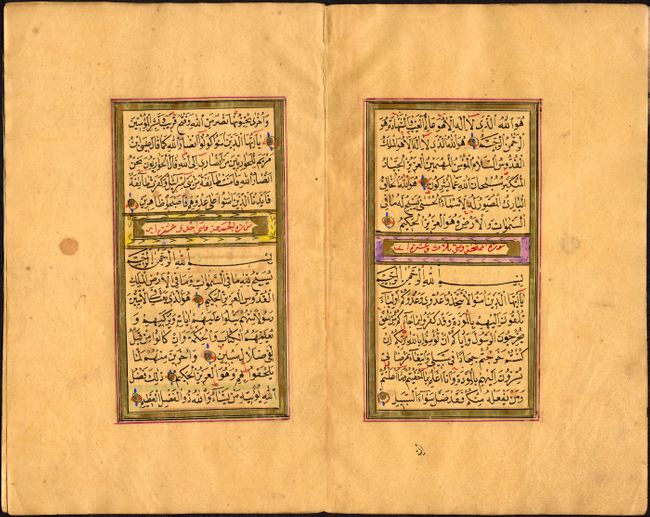 هو الله الذى لا اله الا هو عالم الغيب والشهادة هو
الرحمن الرحيم هو الله الذى لا اله الا هو الملك
القدوس السلام المؤمن المهيمن العزيز الجبار
المتكبر سبحان الله عما يشركون هو الله الخالق
البارئ المصور له الاسماء الحسنى يسبح له ما فى
السموات والارض وهو العزيز الحكيم
سورة الممتحنة وهى ثلاث عشرة آية
بسم الله الرحمن الرحيم
يا ايها الذين امنوا لا تتخذوا عدوى وعدوكم اولياء
تلقون اليهم بالمودة وقد كفروا بما جاءكم من الحق
يخرجون الرسول واياكم ان تؤمنوا بالله ربكم ان
كنتم خرجتم جهادا فى سبيلى وابتغاء مرضاتى
تسرون اليهم بالمودة وانا اعلم بما اخفيتم وما اعلنتم
ومن يفعله منكم فقد ضل سواء السبيل
ان
واخرى تحبونها نصر من الله وفتح قريب وبشر المؤمنين
يا ايها الذين امنوا كونوا انصار الله كما قال عيسى ابن
مريم للحواريين من انصارى الى الله قال الحواريون نحن
انصار الله فامنت طائفة من بنى اسرائيل وكفرت طائفة
فايدنا الذين امنوا على عدوهم فاصبحوا ظاهرين
سورة الجمعة وهى احدى عشرة آية
بسم الله الرحمن الرحيم
يسبح لله ما فى السموات وما فى الارض الملك
القدوس العزيز الحكيم هو الذى بعث فى الاميين
رسولا منهم يتلوا عليهم اياته ويزكيهم و
يعلمهم الكتاب والحكمة وان كانوا من قبل
لفى ضلال مبين واخرين منهم لما
يلحقوا بهم وهو العزيز الحكيم ذلك فضل
الله يؤتيه من يشاء والله ذو الفضل العظيم